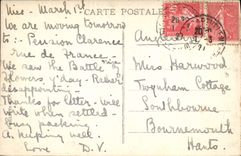 CARTE POSTALE
Nice - March 1st
We are moving tomorrow
to :- Pension Clarence
rue de France
Nice
We saw the Battle of
Flowers y'day - Rather
disappointing -
Thanks for letter - Will
write when settled
busy packing
A. helping well
Love D. V.
Miss Harwood
Twynham Cottage
Southbourne
Bournemouth
Hants.